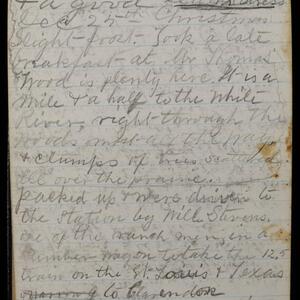 & a good
Dec 25th Christmas
slight frost. Took a late
breakfast at Mr Thomas'
Wood is plenty here. It is a
mile & a half to the White
River, right through the
woods most all the way
& clumps of trees scattered
all over the prairie.
packed up & were driven to
the station by Will Stevens
one of the ranch men, in a
lumber wagon to take the 12.5
train on the St. Louis & Texas
running to Clarendon